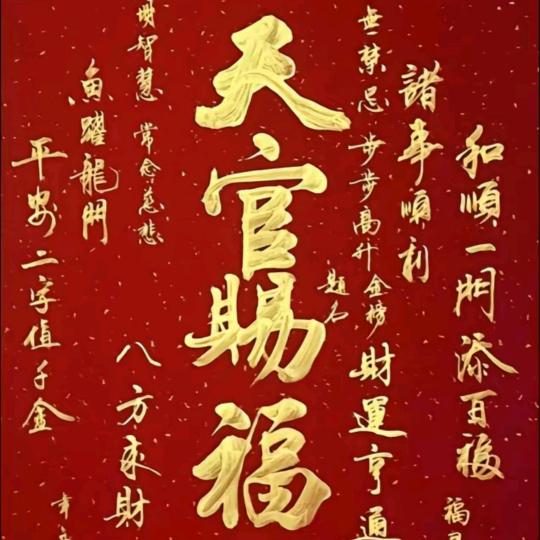 和順一門添百福
福
諸事順利
無禁忌 步步高升 金榜
題名
財運亨通
天官賜福
智慧 常念慈悲
八方來財
魚躍龍門
平安二字值千金